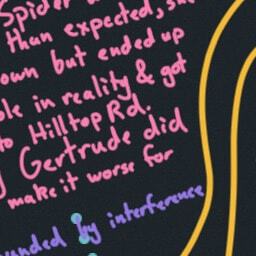 Spider
than expected, she
own but ended up
ole in reality & got
to Hilltop Rd.
Gertrude did
make it worse for
unded by interference